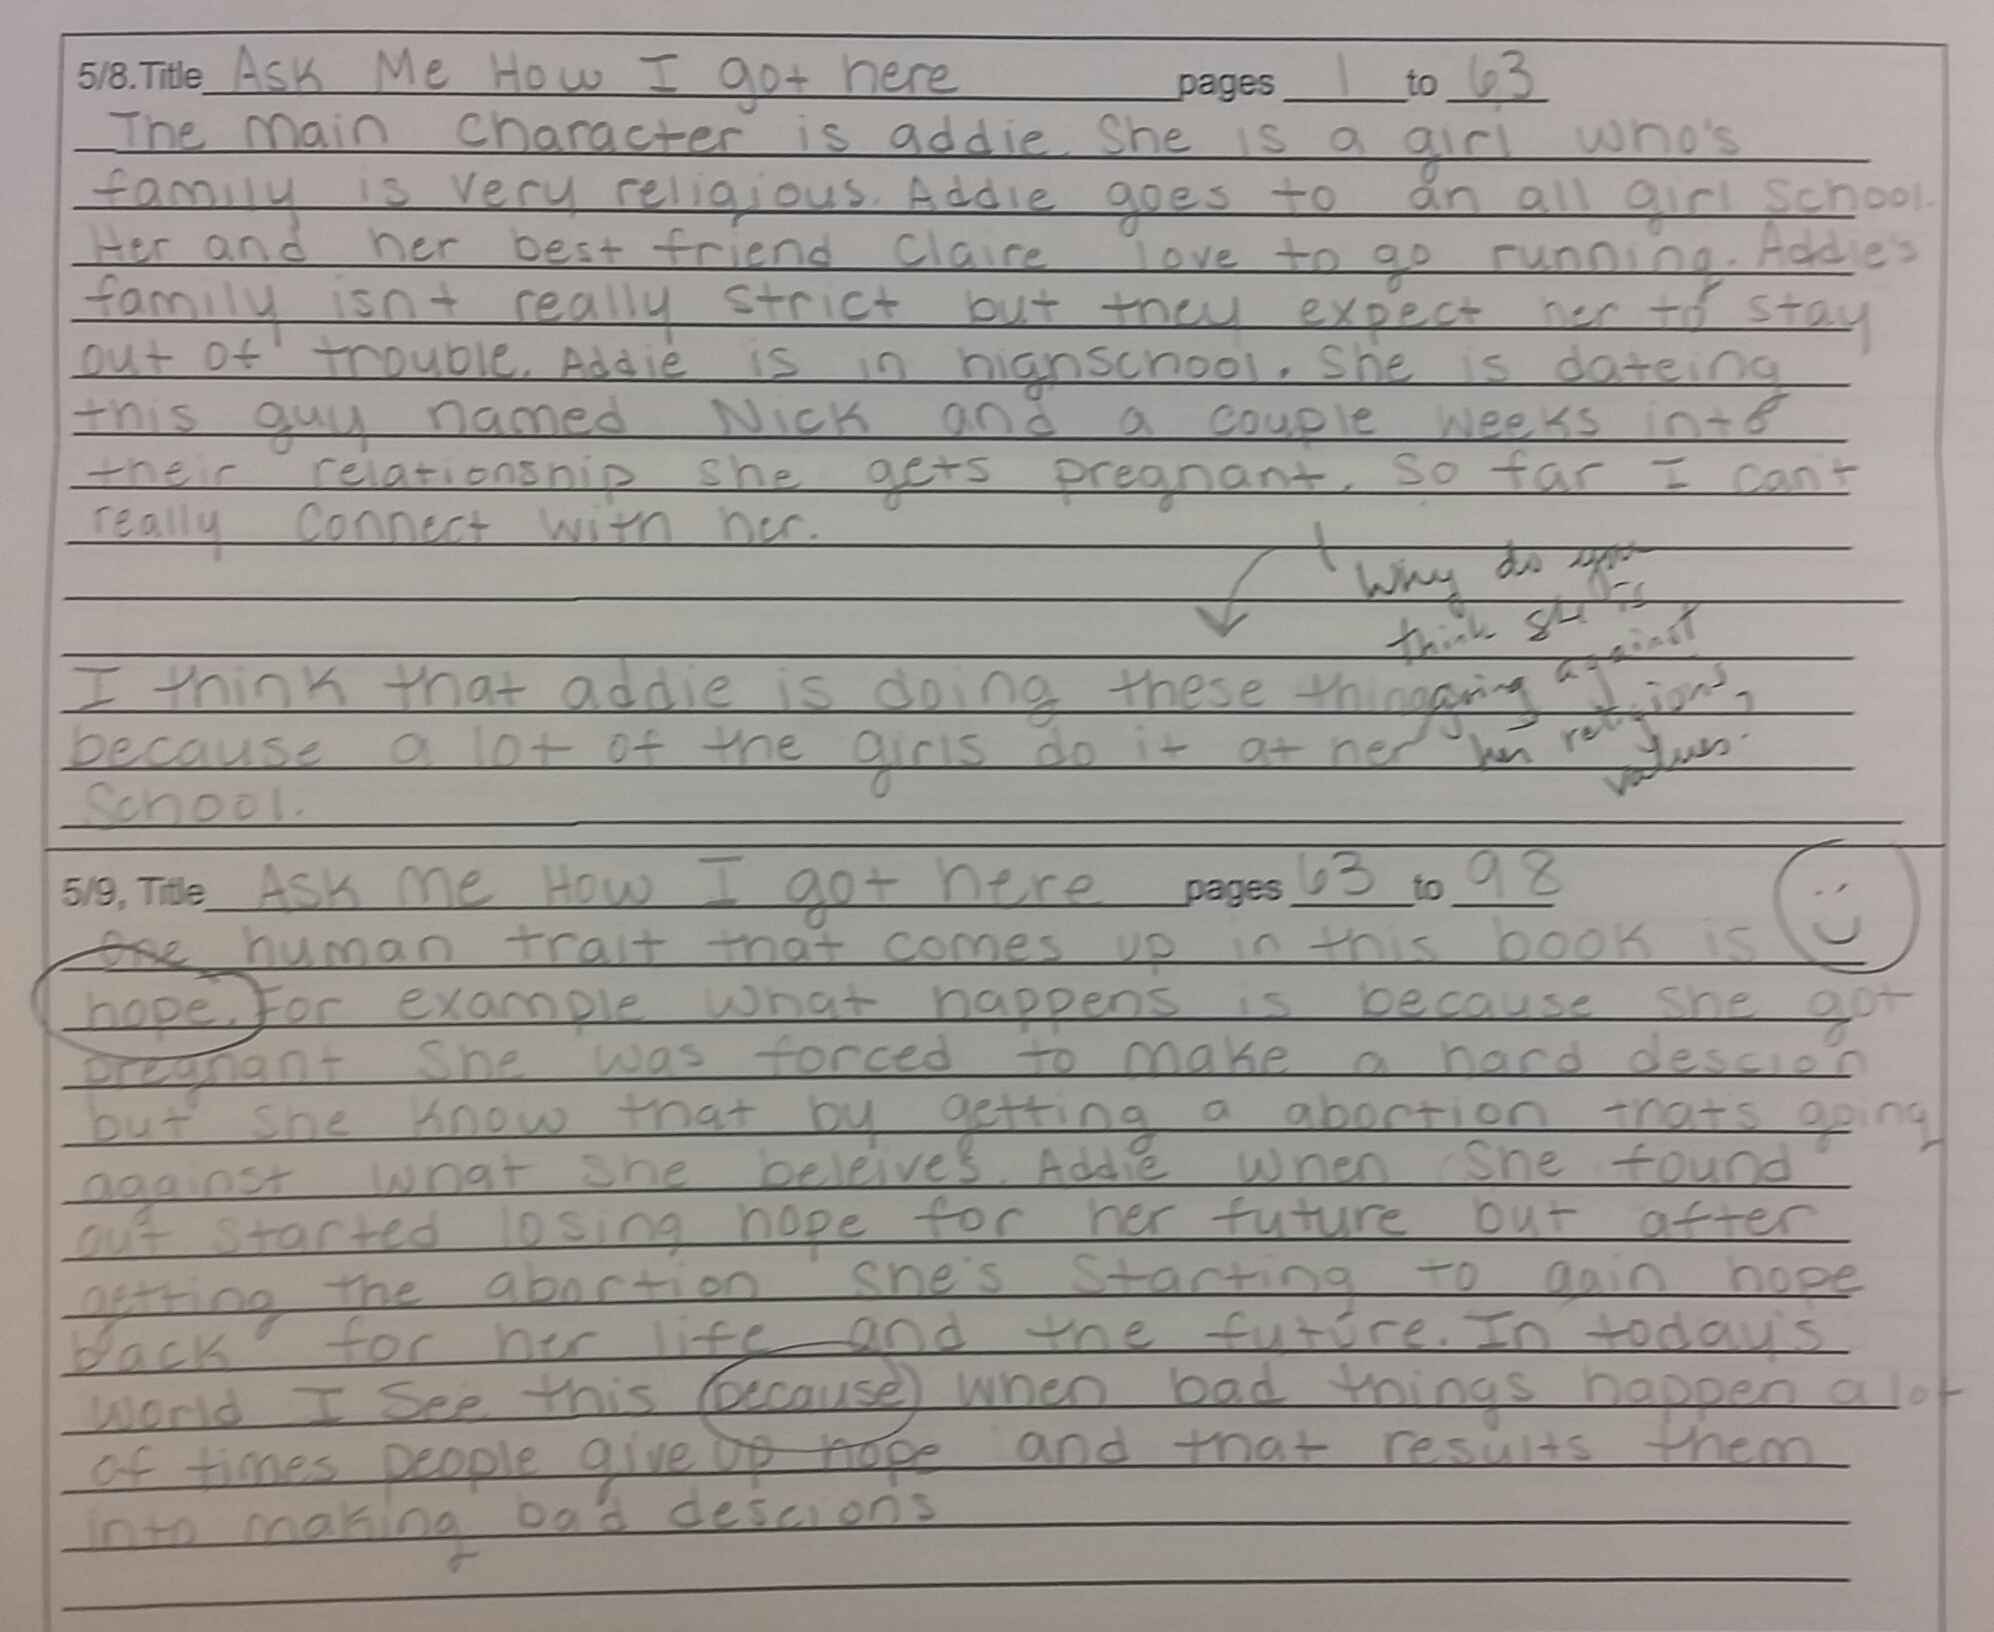 5/8. Title Ask Me How I got here pages 1 to 63
The main character is addie. She is a girl who's
family is very religious. Addie goes to an all girl school.
Her and her best friend Claire love to go running. Addie's
family isnt really strict but they expect her to stay
out of trouble. Addie is in highschool. She is dateing
this guy named Nick and a couple weeks into
their relationship she gets pregnant. So far I can't
really connect with her.
Why do you
think she is
going against
her religious
values.
I think that addie is doing these things
because a lot of the girls do it at her
school.
5/9, Title Ask Me How I got here pages 63 to 98
One human trait that comes up in this book is
hope. For example what happens is because she got
pregnant she was forced to make a hard descion
but she know that by getting a abortion thats going
against what she beleives. Addie when she found
out started losing hope for her future but after
getting the abortion she's starting to gain hope
back for her life and the future. In today's
world I see this because when bad things happen a lot
of times people give up hope and that results them
into making bad descions